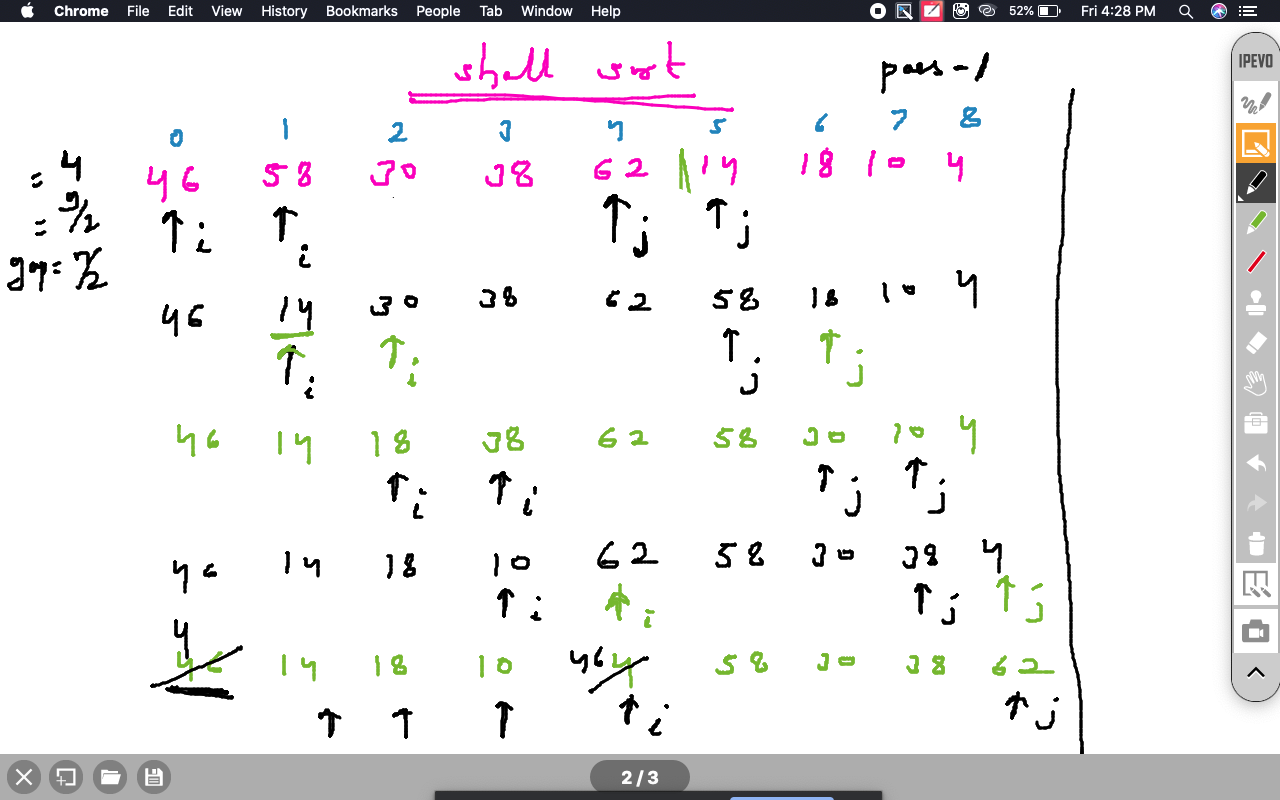 Chrome File Edit View History Bookmarks People Tab Window Help 52% Fri 4:28 PM
IPEVO
shell sort pass-1
0 1 2 3 4 5 6 7 8
= 4 46 58 30 38 62 14 18 10 4
= 9/2 i i j j
gap = n/2
46 14 30 38 62 58 18 10 4
i i j j
46 14 18 38 62 58 30 10 4
i i j j
46 14 18 10 62 58 30 38 4
i i j j
4
46 14 18 10 46 4 58 30 38 62
i j
2 / 3